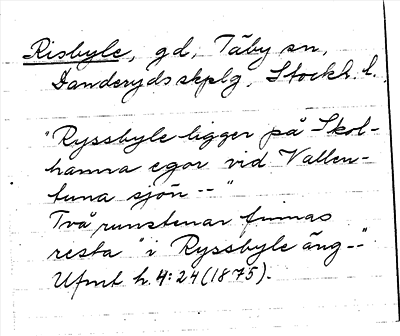 Risbyle, gd, Täby sn,
Danderyds skplg, Stockh. l.
"Ryssbyle ligger på Skol-
hamra egor vid Vallen-
tuna sjön --"
Två runstenar finnas
resta "i Ryssbyle äng --"
Ufmt h. 4: 24 (1875).